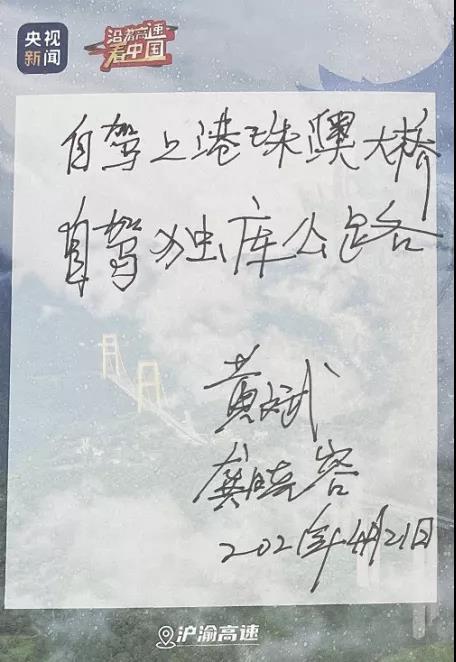 央视
新闻
沿着高速
看中国
自驾上港珠澳大桥
自驾独库公路
黄斌
龚晓容
2021年4月21日
沪渝高速